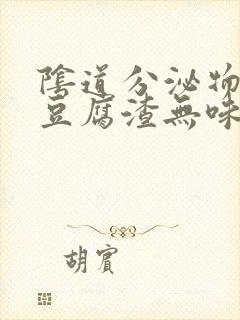 陰道分泌物
豆腐渣無味
胡賓